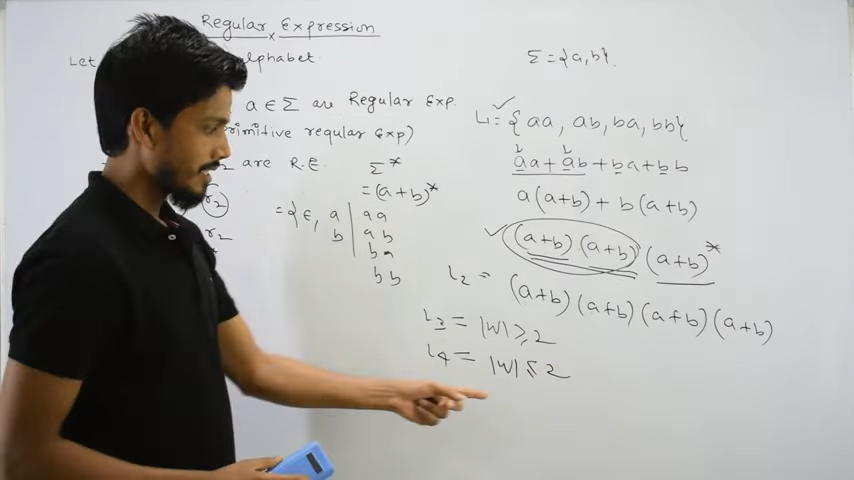 Regular Expression
Let
alphabet.
a ∈ Σ are Regular Exp.
primitive regular exp)
are R.E
r2
r2
Σ*
= (a+b)*
= { ε, a | aa
b | ab
ba
bb
Σ = {a, b}.
L1 = { aa, ab, ba, bb}
aa + ab + ba + bb
a(a+b) + b(a+b)
(a+b) (a+b) (a+b)*
L2 = (a+b) (a+b) (a+b) (a+b)
L3 = |W| ≥ 2
L4 = |W| ≤ 2